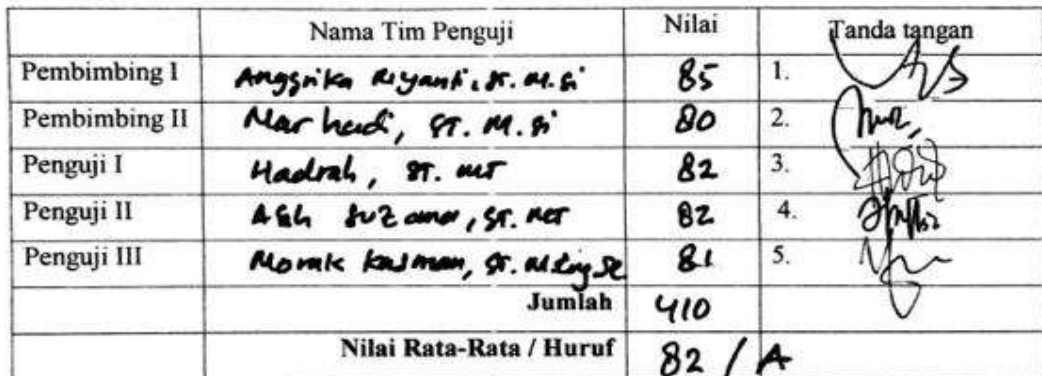 Nama Tim Penguji Nilai Tanda tangan
Pembimbing I Anggrika Riyanti, ST. M.Si 85 1.
Pembimbing II Marhadi, ST. M.Si 80 2.
Penguji I Hadrah, ST. MT 82 3.
Penguji II Asih Suzana, ST. MT 82 4.
Penguji III Monik Kasman, ST. M.Eng.Sc 81 5.
Jumlah 410
Nilai Rata-Rata / Huruf 82 / A